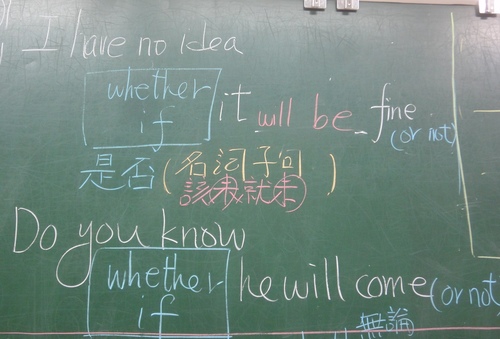 I have no idea
whether
if
it will be fine
(or not)
是否(名詞子句)
該未就未
Do you know
whether
if
he will come (or not
無論